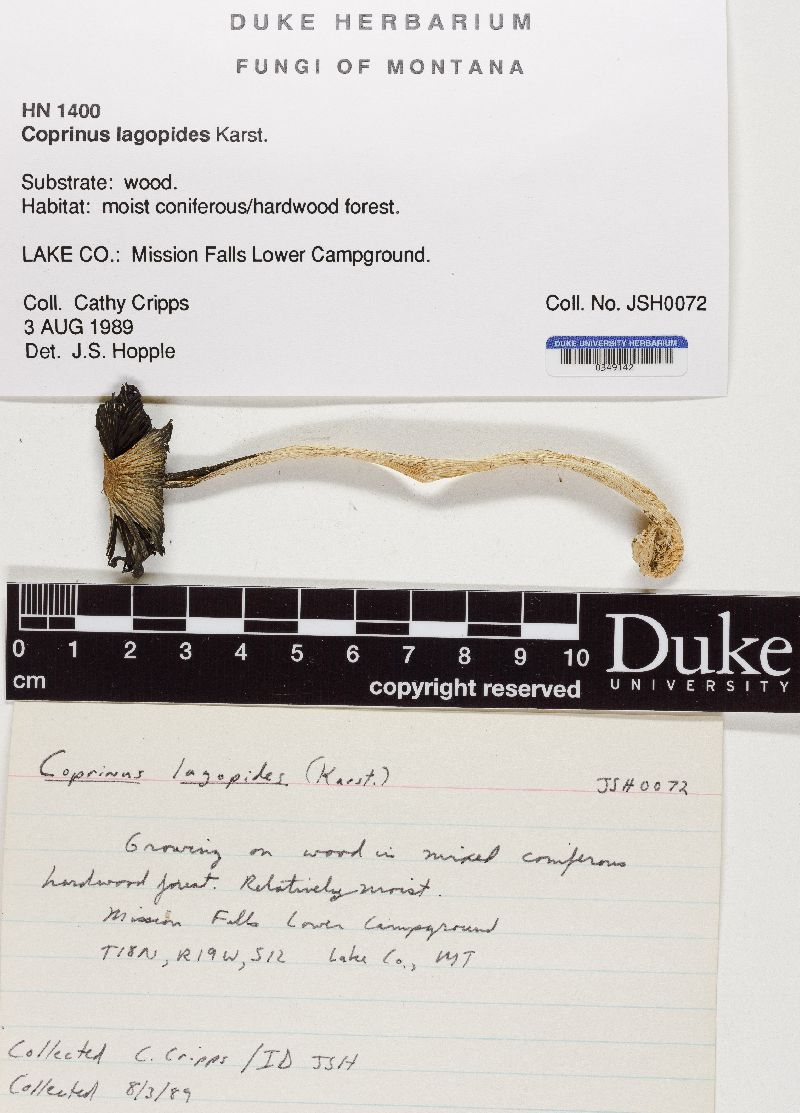 DUKE HERBARIUM
FUNGI OF MONTANA
HN 1400
Coprinus lagopides Karst.
Substrate: wood.
Habitat: moist coniferous/hardwood forest.
LAKE CO.: Mission Falls Lower Campground.
Coll. Cathy Cripps
3 AUG 1989
Det. J.S. Hopple
Coll. No. JSH0072
DUKE UNIVERSITY HERBARIUM
0349142
0 1 2 3 4 5 6 7 8 9 10
cm
copyright reserved
Duke
UNIVERSITY
Coprinus lagopides (Karst.)
JSH0072
Growing on wood in mixed coniferous
hardwood forest. Relatively moist.
Mission Falls Lower Campground
T18N, R19W, S12 Lake Co., MT
Collected C. Cripps / ID JSH
Collected 8/3/89